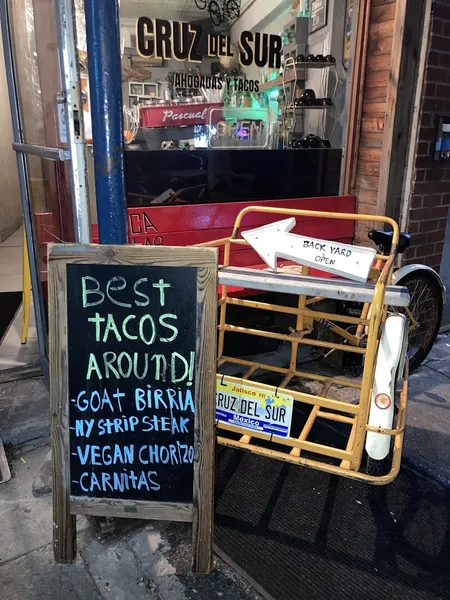 CRUZ DEL SUR
AHOGADAS Y TACOS
Pascual
CA
BACK YARD
OPEN
BEST
TACOS
AROUND!
-GOAT BIRRIA
-NY STRIP STEAK
-VEGAN CHORIZO
-CARNITAS
Jalisco
CRUZ DEL SUR
Mexico